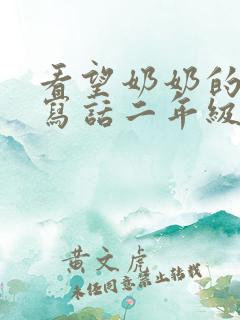 看望奶奶的
寫話二年級
黃文虎
未经同意禁止转载